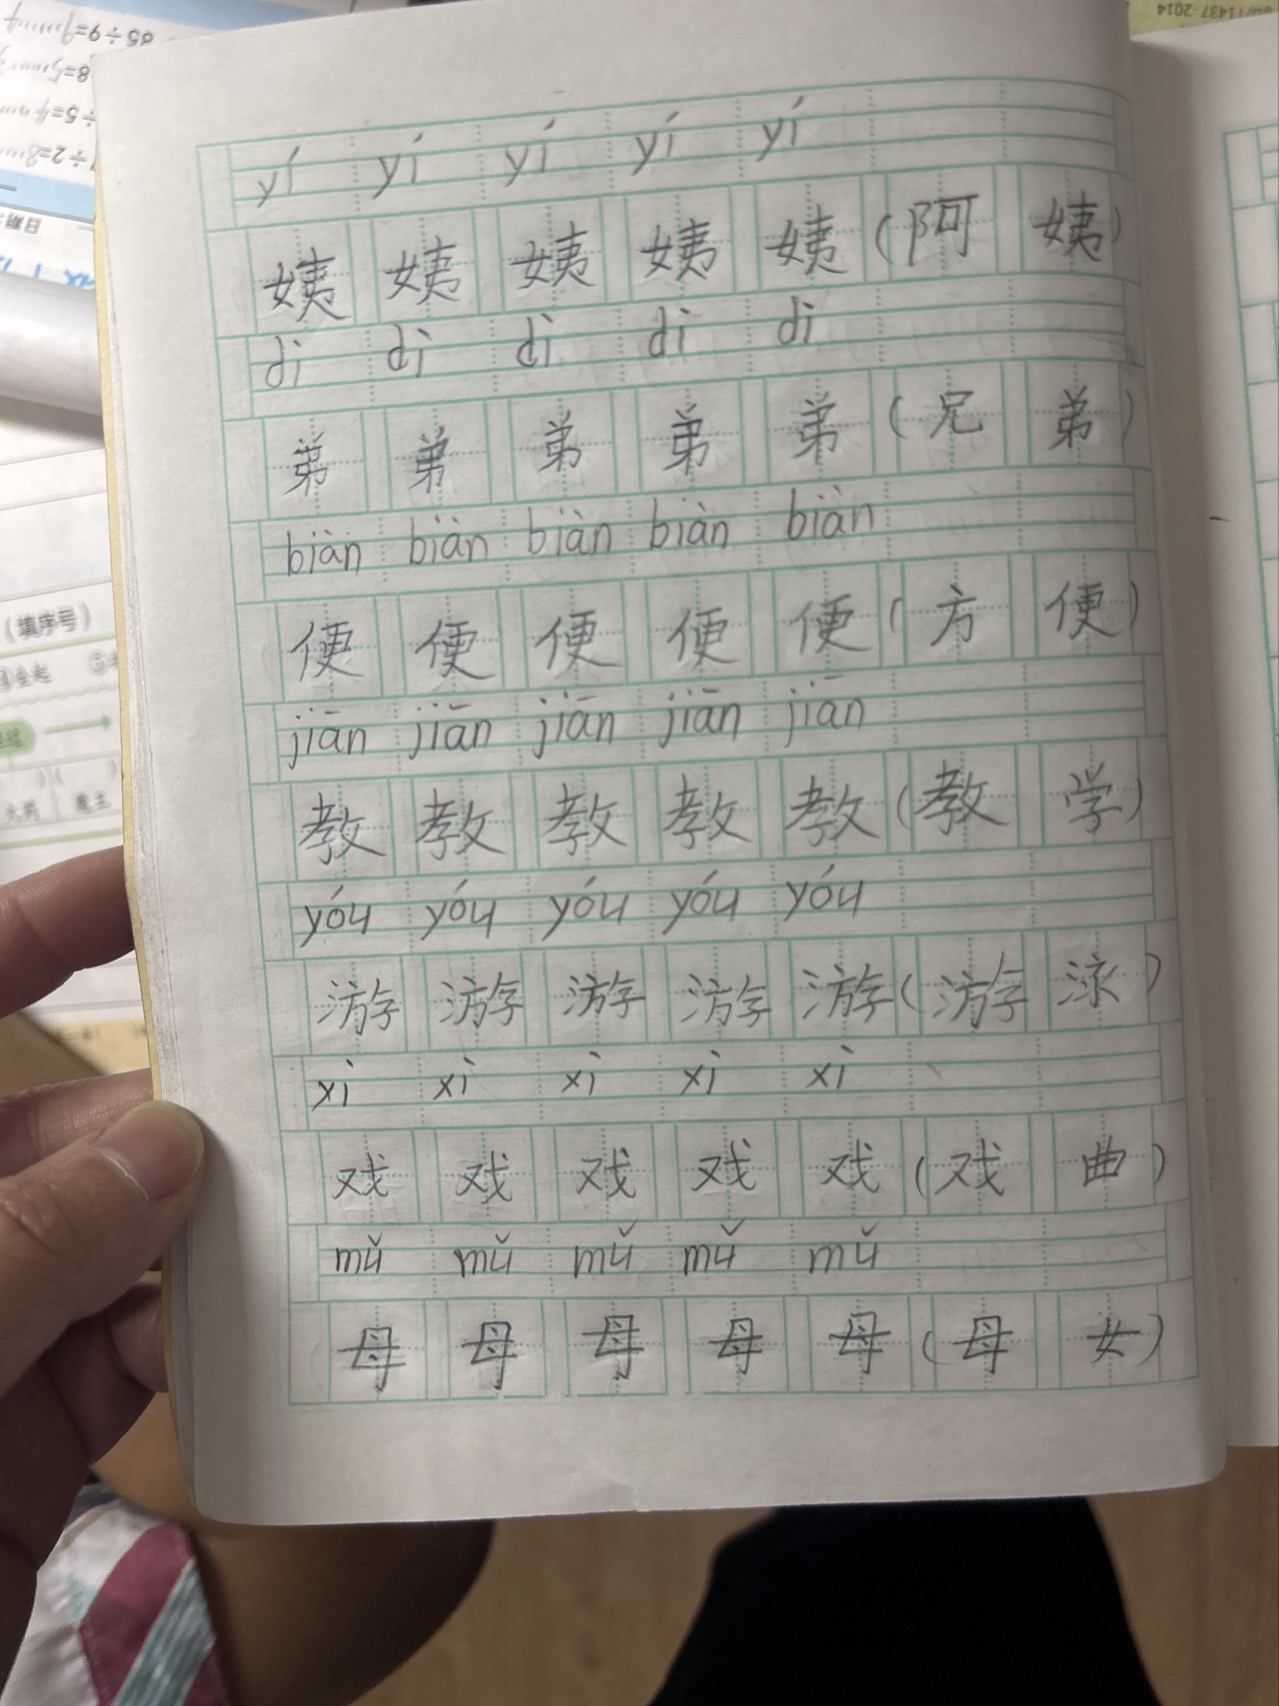 yí yí yí yí yí
姨 姨 姨 姨 姨 (阿 姨)
dì dì dì dì dì
弟 弟 弟 弟 弟 (兄 弟)
biàn biàn biàn biàn biàn
便 便 便 便 便 (方 便)
jiān jiān jiān jiān jiān
教 教 教 教 教 (教 学)
yóu yóu yóu yóu yóu
游 游 游 游 游 (游 泳)
xì xì xì xì xì
戏 戏 戏 戏 戏 (戏 曲)
mǔ mǔ mǔ mǔ mǔ
母 母 母 母 母 (母 女)
(填序号)
魔王